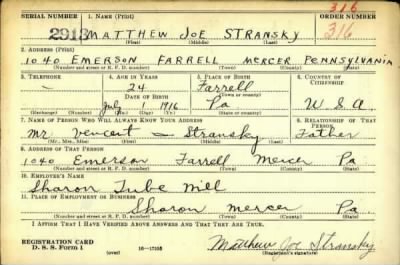 316
SERIAL NUMBER 1. NAME (Print) ORDER NUMBER
2913 MATTHEW JOE STRANSKY 316
(First) (Middle) (Last)
2. ADDRESS (Print)
1040 EMERSON FARRELL MERCER PENNSYLVANIA
(Number and street or R. F. D. number) (Town) (County) (State)
3. TELEPHONE 4. AGE IN YEARS 5. PLACE OF BIRTH 6. COUNTRY OF CITIZENSHIP
– 24 Farrell
DATE OF BIRTH (Town or county)
July 1 1916 Pa U.S.A.
(Mo.) (Day) (Yr.) (State or country)
7. NAME OF PERSON WHO WILL ALWAYS KNOW YOUR ADDRESS 8. RELATIONSHIP OF THAT PERSON
Mr. — Stransky Father
(Mr., Mrs., Miss) (First) (Middle) (Last)
9. ADDRESS OF THAT PERSON
1040 Emerson Farrell Mercer Pa.
(Number and street or R. F. D. number) (Town) (County) (State)
10. EMPLOYER'S NAME
Sharon Tube Mill
11. PLACE OF EMPLOYMENT OR BUSINESS
Sharon Mercer Pa.
(Number and street or R. F. D. number) (Town) (County) (State)
I AFFIRM THAT I HAVE VERIFIED ABOVE ANSWERS AND THAT THEY ARE TRUE.
REGISTRATION CARD Matthew Joe Stransky
D. S. S. Form 1 (over) 16—17105 (Registrant's signature)